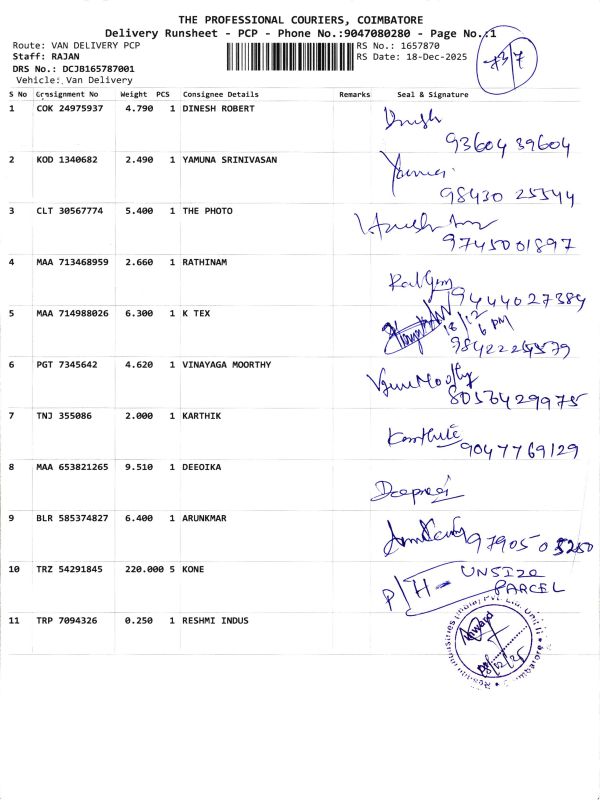 THE PROFESSIONAL COURIERS, COIMBATORE
Delivery Runsheet - PCP - Phone No.:9047080280 - Page No.:1
Route: VAN DELIVERY PCP RS No.: 1657870
Staff: RAJAN RS Date: 18-Dec-2025
DRS No.: DCJB165787001
Vehicle: Van Delivery
S No Consignment No Weight PCS Consignee Details Remarks Seal & Signature
1 COK 24975937 4.790 1 DINESH ROBERT Dinesh
93604 39604
2 KOD 1340682 2.490 1 YAMUNA SRINIVASAN
98430 25544
3 CLT 30567774 5.400 1 THE PHOTO
9745001897
4 MAA 713468959 2.660 1 RATHINAM
9444027384
5 MAA 714988026 6.300 1 K TEX 18/12
6 PM
6 PGT 7345642 4.620 1 VINAYAGA MOORTHY
8056429975
7 TNJ 355086 2.000 1 KARTHIK
9047769129
8 MAA 653821265 9.510 1 DEEOIKA
9 BLR 585374827 6.400 1 ARUNKMAR
10 TRZ 54291845 220.000 5 KONE P/H - UNSIZO
PARCEL
11 TRP 7094326 0.250 1 RESHMI INDUS